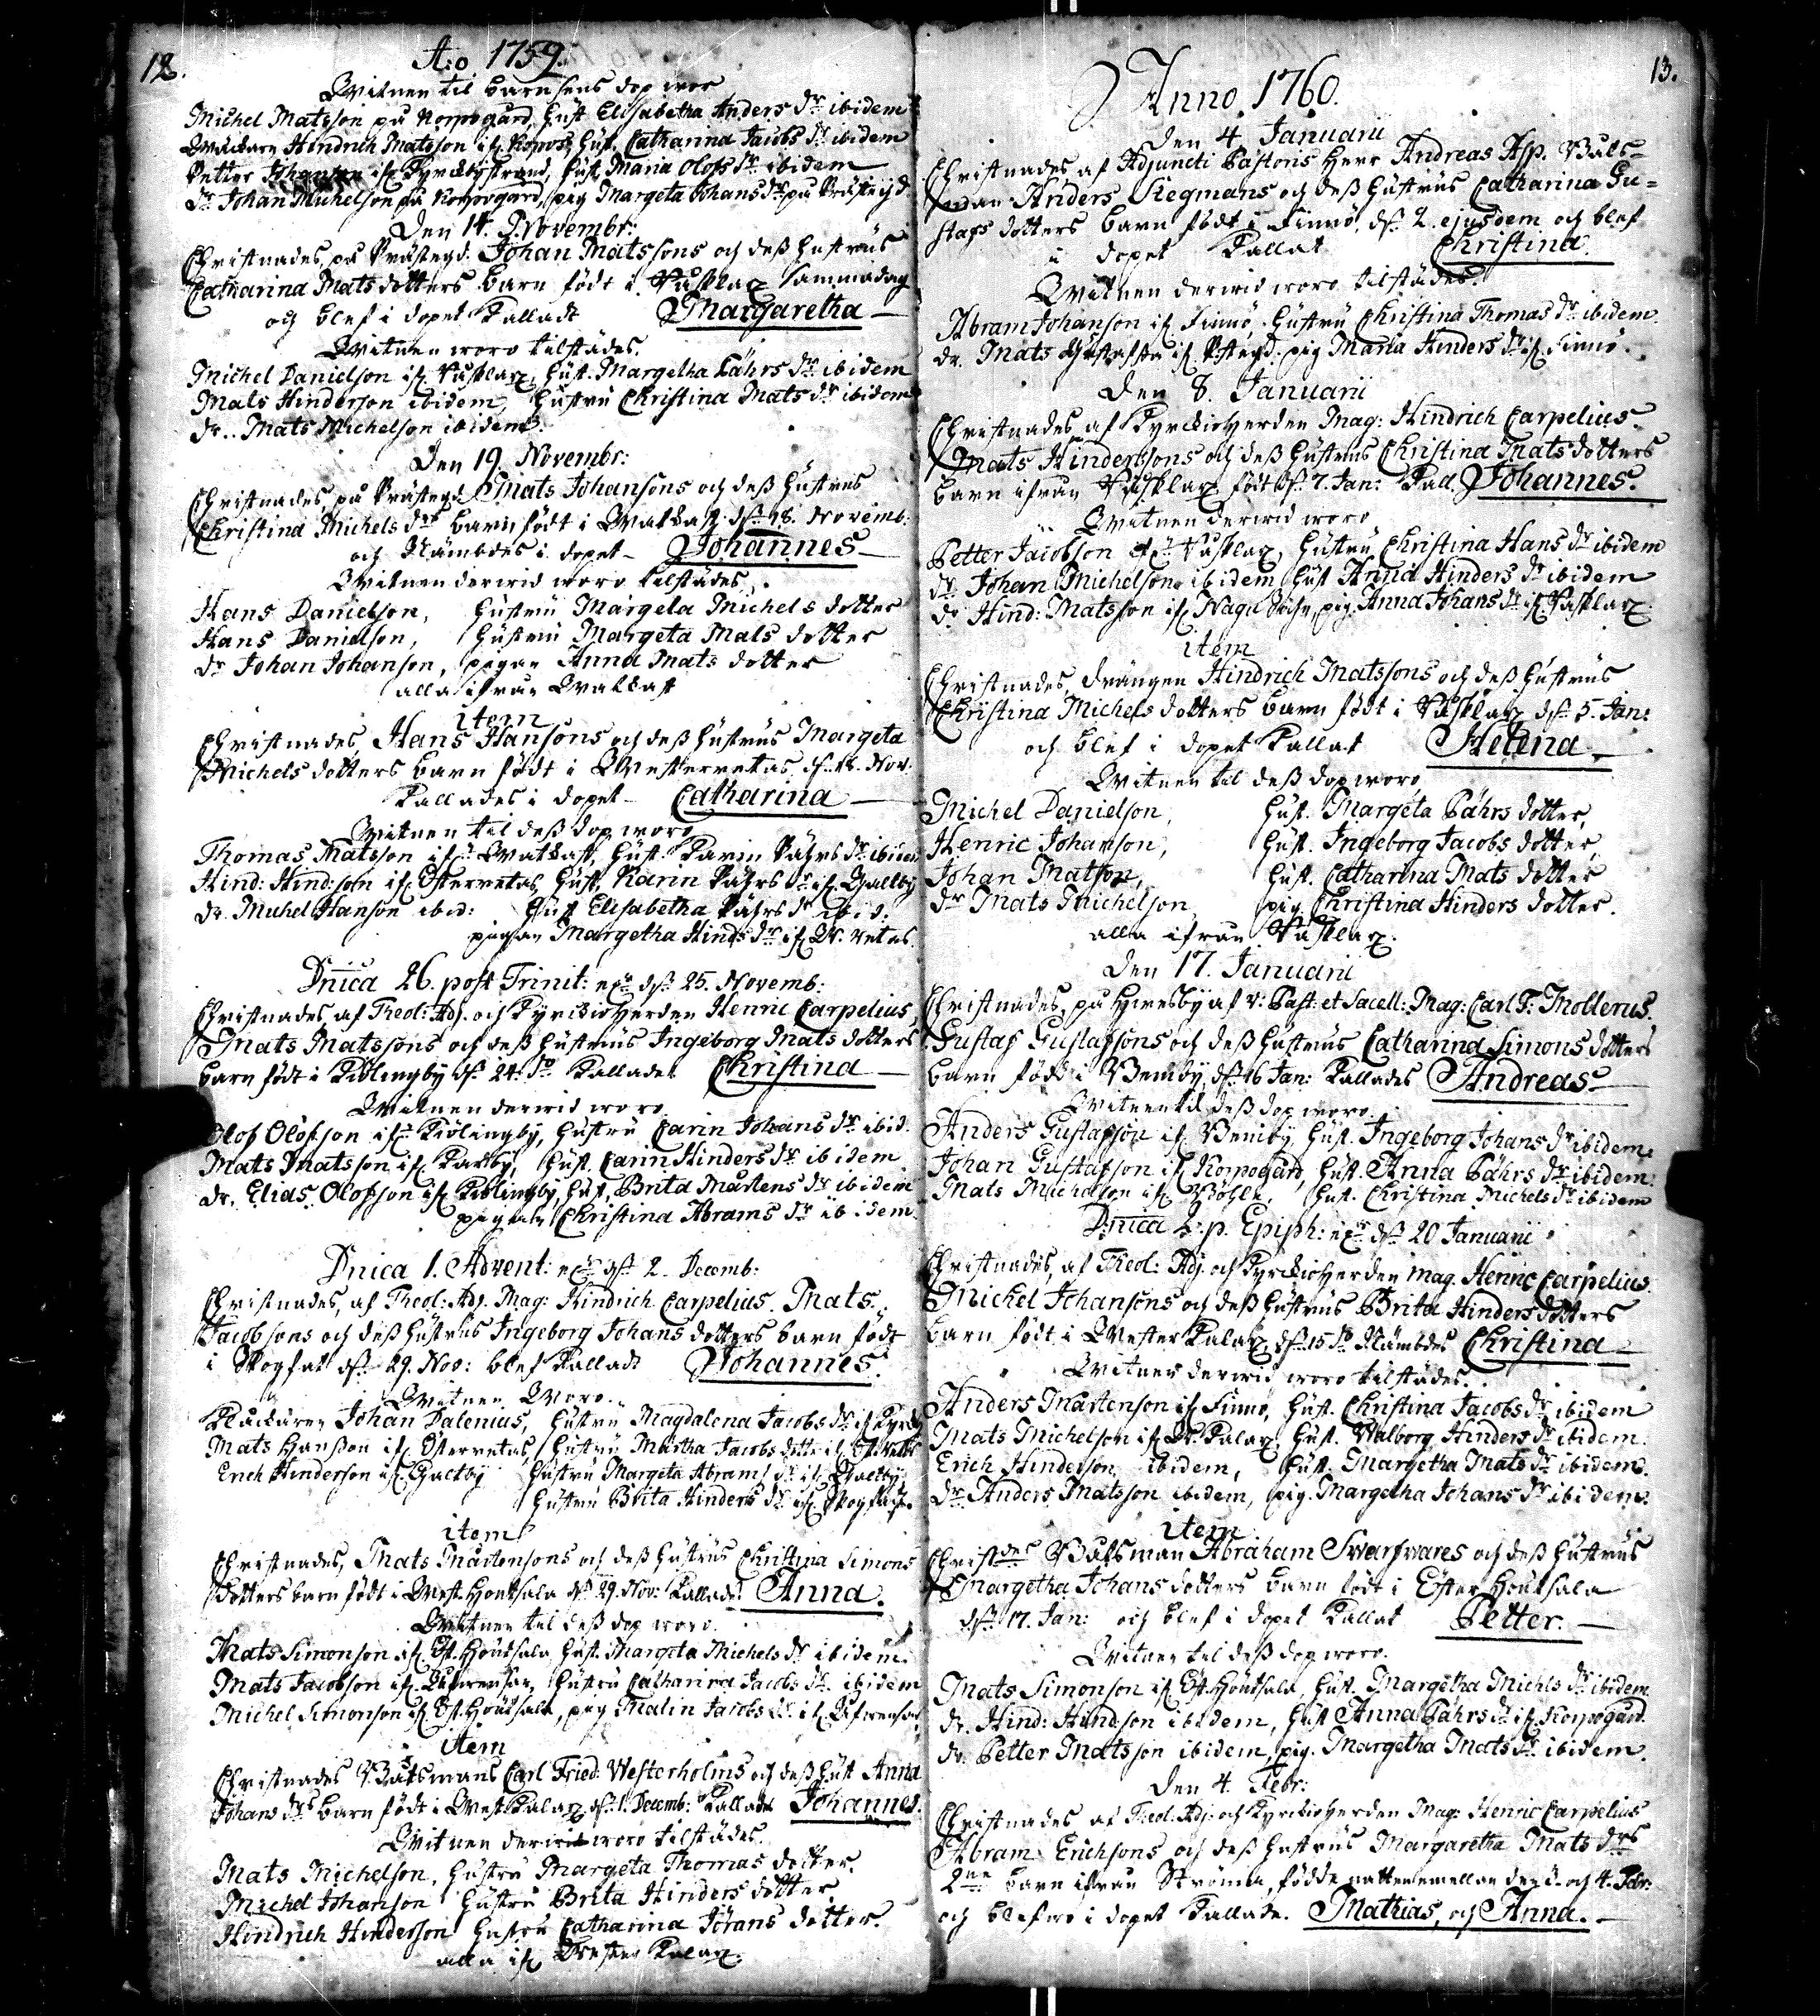 12.
A:o 1759.
Witnen til barnsens dop wor
Michel Matsson på Korpogård, hust. Elisabetha Anders dr ibidem
Hindrich Matsson if. Korpos, hust. Catharina Jacobs dr ibidem
Petter Johanson if. Kyrckbystrand, hust. Maria Olofs dr ibidem
Dr. Johan Michelson på Korpogård, pig. Margeta Johans dr på Prästegd
Den 14. Novembr:
Christnades, på Prästegd. Johan Matssons och dess hustrus
Catharina Mats dotters barn födt i Rusklax samma dag
och blef i dopet kalladt Margaretha
Witnen woro tilstädes.
Michel Danielson if. Rusklax, hust. Margetha Påhrs dr ibidem
Mats Hinderson ibidem, hustru Christina Mats dr ibidem
dr. Mats Michelson ibidem.
Den 19. Novembr:
Christnades, på Prästegd. Mats Johansons och dess hustrus
Christina Michels drs barn födt i Wattkast dn 18. Novemb:
och nämbdes i dopet Johannes
Witnen derwid woro tilstädes.
Hans Danielson, hustru Margeta Michels dotter
Hans Danielson, hustru Margeta Mats dotter
dr Johan Johanson, pigan Anna Mats dotter
alla ifrån Wattkast
item
Christnades, Hans Hansons och dess hustrus Margeta
Michels dotters barn födt i Westerretais dn Nov.
kallades i dopet Catharina
Witnen til dess dop woro
Thomas Matsson if. Wattkast, hust. Karin Påhrs dr ibidem
Hind: Hind:son if. Österretais, hust. Karin Påhrs dr if. Galtby
dr. Michel Hanson ibid: hust Elisabetha Påhrs dr ibid:
pigan Margetha Hinds dr if. W. retais.
Dnica 26. post Trinit: dn 25. Novemb:
Christnades af Theol: Adj. och Kyrckioherden Henric Carpelius,
Mats Matssons och dess hustrus Ingeborg Mats dotters
barn födt i Kiölingby dn 24. do kallades Christina
Witnen derwid woro
Olof Olofson if. Kiölingby, hustru Carin Johans dr ibid.
Mats Matsson if. Karby, hust. Carin Hinders dr ibidem
dr. Elias Olofsson if. Kiölingby, hust. Brita Mårtens dr ibidem
pigan Christina Abrams dr ibidem
Dnica 1. Advent: dn 2. Decemb:
Christnades, af Theol: Adj. Mag: Hindrich Carpelius. Mats
Jacobsons och dess hustrus Ingeborg Johans dotters barn födt
i Skogfat dn 29. Nov: blef kalladt Johannes.
Witnen Woro.
Klåckaren Johan Dalenius, hustru Magdalena Jacobs dr if. Kyrckby
Mats Hansson if. Österretais, hustru Martha Jacobs dotter if. Öst.retais
Erich Hinderson if. Galtby hustru Margeta Abrams dr if. Galtby
hustru Brita Hinders dr if. Skogfat.
item
Christnades, Mats Mårtensons och dess hustrus Christina Simons
dotters barn födt i West. Houtsala dn 29. Nov: kallades Anna.
Witnen til dess dop woro.
Mats Simonson if. Öst. Houtsala, hust. Margeta Michels dr ibidem.
Mats Jacobson if. hustru Catharina Jacobs dr ibidem
Michel Simonson if. Öst. Houtsala, pig. Malin Jacobs dr if.
item
Christnades Båtsmans Carl Fried: Westerholms och dess hust Anna
Johans drs barn födt i West. Kalax, dn 1. Decemb: kallades Johannes.
Witnen derwid woro tilstädes.
Mats Michelson, hustru Margeta Thomas dotter.
Michel Johanson hustru Brita Hinders dotter
Hindrich Hinderson hustru Catharina Jörans dotter.
alla if. Wester Kalax.
13.
Anno 1760.
Den 4. Januarii
Christnades af Adjuncti Pastoris Herr Andreas Asp. Båts-
man Anders Stegmans och dess hustrus Catharina Gu-
stafs dotters barn födt i Finnö, dn 2. ejusdem och blef
i dopet kallat Christina.
Witnen derwid woro tilstädes.
Abram Johanson if. Finnö, hustru Christina Thomas dr ibidem.
dr. Mats Gustafson if. pig. Maria Anders dr if. Finnö.
Den 8. Januarii
Christnades af Kyrckioherden Mag: Hindrich Carpelius.
Mats Hinderssons och dess hustrus Christina Mats dotters
barn ifrån Rusklax födt dn 7. Jan: kall. Johannes.
Witnen derwid woro
Petter Jacobson if. Rusklax, hustru Christina Hans dr ibidem
dr. Johan Michelson ibidem, hust Anna Hinders dr ibidem
dr Hind: Matsson if. Nagu Sochn, pig. Anna Johans dr if. Rusklax.
item
Christnades, drängen Hindrich Matssons och dess hustrus
Christina Michels dotters barn födt i Rusklax dn 5. Jan:
och blef i dopet kallat Helena
Witnen til dess dop woro
Michel Danielson, hust. Margeta Påhrs dotter,
Henric Johanson, hust. Ingeborg Jacobs dotter,
Johan Matson, hust. Catharina Mats dotter
dr Mats Michelson pig. Christina Hinders dotter.
alla ifrån Rusklax.
Den 17. Januarii
Christnades, på Hiresby af v: Past: et Sacell: Mag: Carl F: Mollerus.
Gustaf Gustafsons och dess hustrus Catharina Simons dotters
barn född i Bemby, dn 16 Jan: kallades Andreas.
Witnen til dess dop woro.
Anders Gustafson if. Bemby, hust. Ingeborg Johans dr ibidem.
Johan Gustafson if. Korpogård, hust. Anna Påhrs dr ibidem.
Mats Michelson if. hust. Christina Michels dr ibidem
Dnica 2. p. Epiph: dn 20 Januarii
Christnades, af Theol: Adj. och Kyrckioherden Mag. Henric Carpelius
Michel Johansons och dess hustrus Brita Hinders dotters
barn födt i Wester Kalax, dn 15 do nämbdes Christina
Witnen derwid woro tilstädes.
Anders Mårtenson if. Finnö, hust. Christina Jacobs dr ibidem
Mats Michelson if. W. Kalax, hust. Walborg Hinders dr ibidem.
Erich Hinderson ibidem, hust. Margetha Mats dr ibidem.
Dr. Anders Matsson ibidem, pig. Margetha Johans dr ibidem.
item
Christdes Båtsman Abraham Swarfwares och dess hustrus
Margetha Johans dotters barn födt i Öster Houtsala
dn 17. Jan: och blef i dopet kallat Petter.
Witnen til dess dop woro.
Mats Simonson if. Öst. Houtsala, hust. Margetha Michls dr ibidem.
dr. Hind: Hindson ibidem, hust Anna Påhrs dr if. Korpogård.
dr. Petter Matsson ibidem, pig. Margetha Mats dr ibidem.
Den 4. Febr:
Christnades af Theol. Adj: och Kyrckioherden Mag: Henric Carpelius
Abram Erichsons och dess hustrus Margaretha Mats drs
2ne barn ifrån Strömma, födde natten emellan den 3. och 4. Febr:
och blefwo i dopet kallade. Mathias, och Anna.